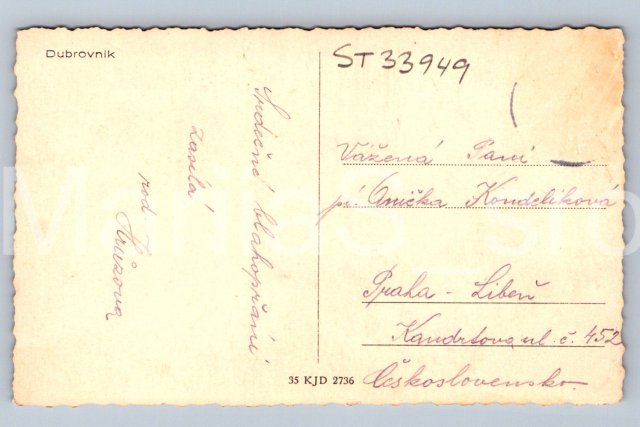 Dubrovnik
ST 33949
Srdečné blahopřání
zasílá
rod
Hrůzova
Vážená Paní
pí. Anička Kondelíková
Praha - Libeň
Kandrtova ul. č. 452
Československo.
35 KJD 2736